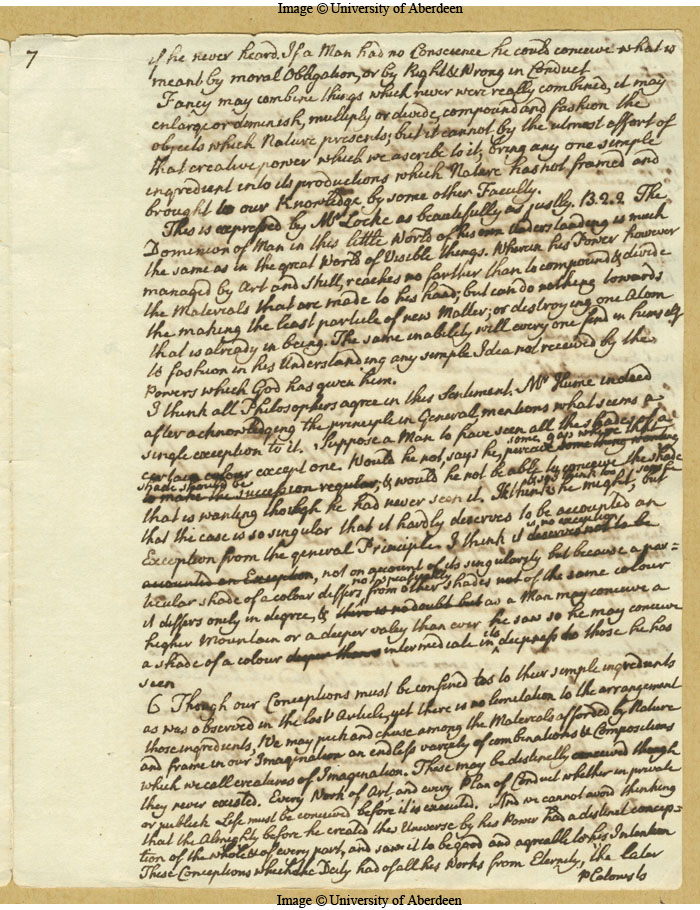 Image © University of Aberdeen
7
if he never heard. If a Man had no Conscience he could conceive what is
meant by moral Obligation, or by Right & Wrong in Conduct
Fancy may combine things which never were really combined, it may
enlarge or diminish, multiply or divide, compound and fashion the
objects which Nature presents; but it cannot by the utmost effort of
that creative power which we ascribe to it, bring any one simple
ingredient into its productions which Nature has not framed and
brought to our Knowledge by some other Faculty.
This is expressed by Mr Locke as beautefully as justly. B.2.2. The
Dominion of Man in this little World of his own Understanding is much
the same as in the great World of Visible things. Wherein his Power however
managed by Art and Skill, reaches no farther than to compound & divide
the Materials that are made to his hand; but can do nothing towards
the making the least particle of new Matter; or destroying one Atom
that is already in being. The same inability will every one find in himself
to fashion in his Understanding any simple Idea not received by the
Powers which God has given him.
I think all Philosophers agree in this Sentiment. Mr Hume indeed
after acknowledging the principle in General, mentions what seems a
single exception to it. Suppose a Man to have seen all the shades of a
some gap where that
certain colour except one. Would he not, says he, perceive something wanting
shade should be
to make the succession regular, & would he not be able to conceive the shade
that is wanting though he had never seen it. I think he might, but
that the case is so singular that it hardly deserves to be accounted an
is no exception
Exception from the general Principle. I think it deserves not to be
accounted an Exception, not on account of its singularity but because a par=
not specifically
ticular shade of a colour differs from other shades not of the same colour
it differs only in degree, & there is no doubt but as a Man may conceive a
higher Mountain or a deeper valey than ever he saw so he may conceive
its
a shade of a colour deeper than intermediate in deepness to those he has
seen
6 Though our Conceptions must be confined to their simple ingredients
as was observed in the last Article, yet there is no limitation to the arrangement
those ingredients, We may pick and chuse among the Materials afforded by Nature
and frame in our Imagination an endless variety of combinations & Compositions
which we call creatures of Imagination. These may be distinctly conceived though
they never existed. Every Work of Art and every Plan of Conduct whether in private
or publick Life must be conceived before it is executed. And we cannot avoid thinking
that the Almighty before he created the Universe by his Power had a distinct concep=
tion of the whole & of every part, and saw it to be good and agreable to his Intention
These Conceptions which the Deity had of all his Works from Eternity, the later
Platonists
Image © University of Aberdeen